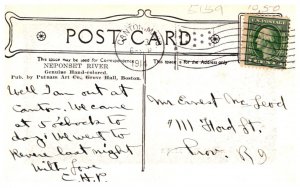 5159 1250
POST CARD
CANTON, MASS.
1914
This space may be used for Correspondence
This space is for the Address only
NEPONSET RIVER
Genuine Hand-colored.
Pub. by Putnam Art Co., Grove Hall, Boston.
Well I am out at
Canton. We came
at 5 o'clock to
day. We went to
Revere last night
With love
E.H.P.
Mr Ernest McLeod
111 Ford St.
Prov. R I